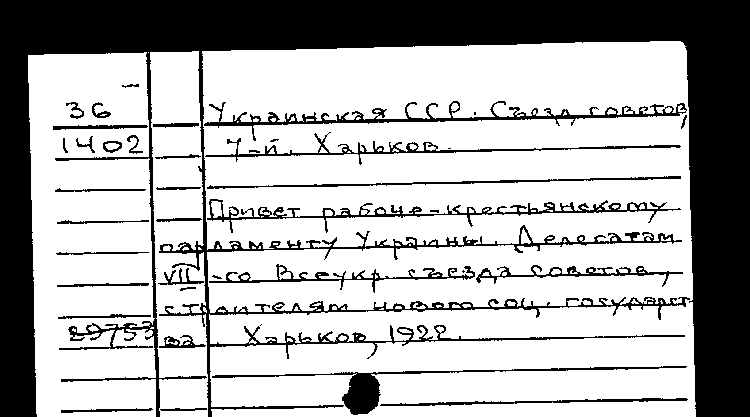 36 Украинская ССР. Съезд советов,
1402 7-й. Харьков.
Привет рабоче-крестьянскому
парламенту Украины. Делегатам
VII-го Всеукр. съезда советов,
строителям нового соц. государст-
29753 ва. Харьков, 1922.